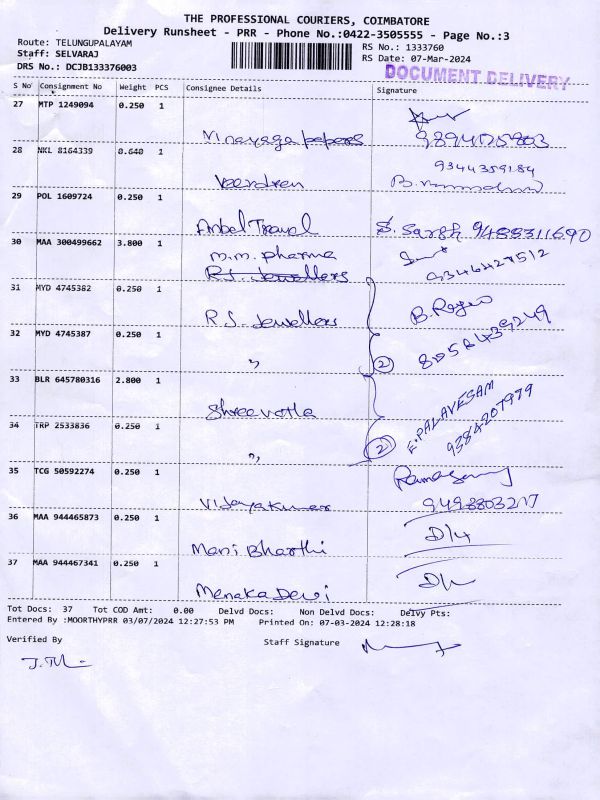 THE PROFESSIONAL COURIERS, COIMBATORE
Delivery Runsheet - PRR - Phone No.:0422-3505555 - Page No.:3
Route: TELUNGUPALAYAM
RS No.: 1333760
Staff: SELVARAJ
RS Date: 07-Mar-2024
DRS No.: DCJB133376003
DOCUMENT DELIVERY
S No Consignment No Weight PCS Consignee Details Signature
27 MTP 1249094 0.250 1
Vinayaga papers
28 NKL 8164339 0.640 1
9344359184
29 POL 1609724 0.250 1
Ambel Travel S. Sargh 9488311690
30 MAA 300499662 3.800 1
m.m. pharma
R.S. Jewellers
31 MYD 4745382 0.250 1
R.S. Jewellers B. Roger
32 MYD 4745387 0.250 1
" 2
33 BLR 645780316 2.800 1
Shree votla E. PALAVESAM
9384207979
34 TRP 2533836 0.250 1
" 2
35 TCG 50592274 0.250 1
Vijayakumar
36 MAA 944465873 0.250 1
Mani Bharthi
37 MAA 944467341 0.250 1
Menaka Devi
Tot Docs: 37 Tot COD Amt: 0.00 Delvd Docs: Non Delvd Docs: Delvy Pts:
Entered By :MOORTHYPRR 03/07/2024 12:27:53 PM Printed On: 07-03-2024 12:28:18
Verified By Staff Signature